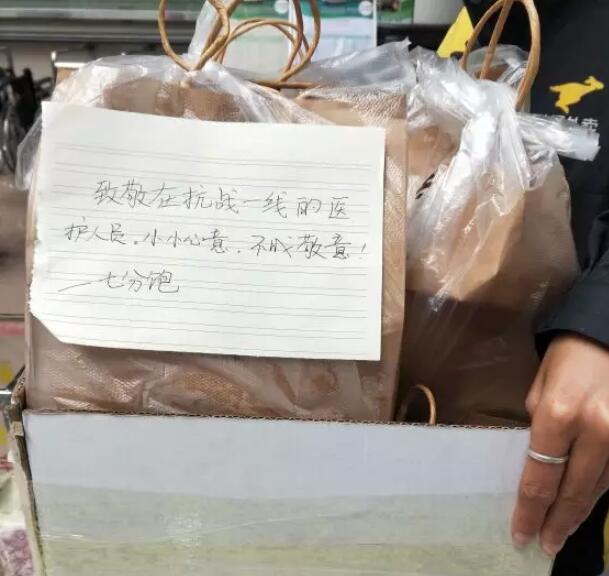 致敬在抗战一线的医
护人员。小小心意．不成敬意！
—七分饱
外卖